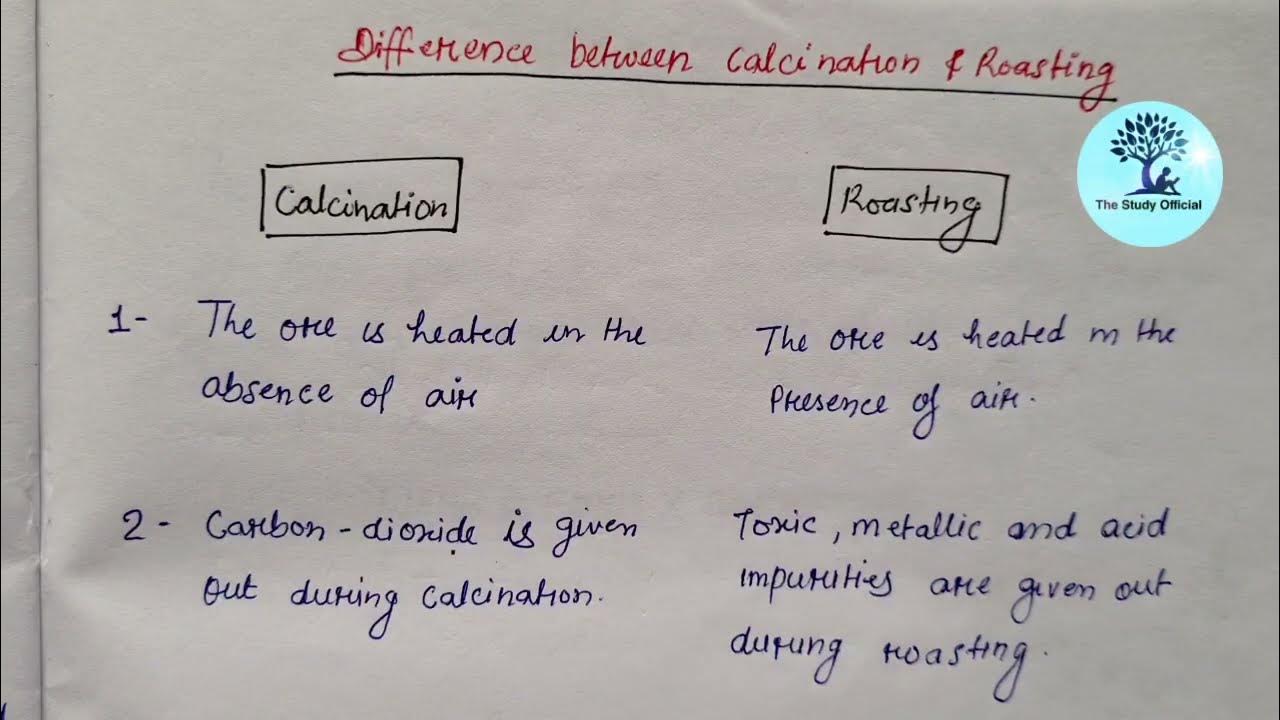 Difference between Calcination & Roasting
The Study Official
Calcination
Roasting
1- The ore is heated in the
absence of air
The ore is heated in the
Presence of air.
2- Carbon-dioxide is given
out during calcination.
Toxic, metallic and acid
impurities are given out
during roasting.